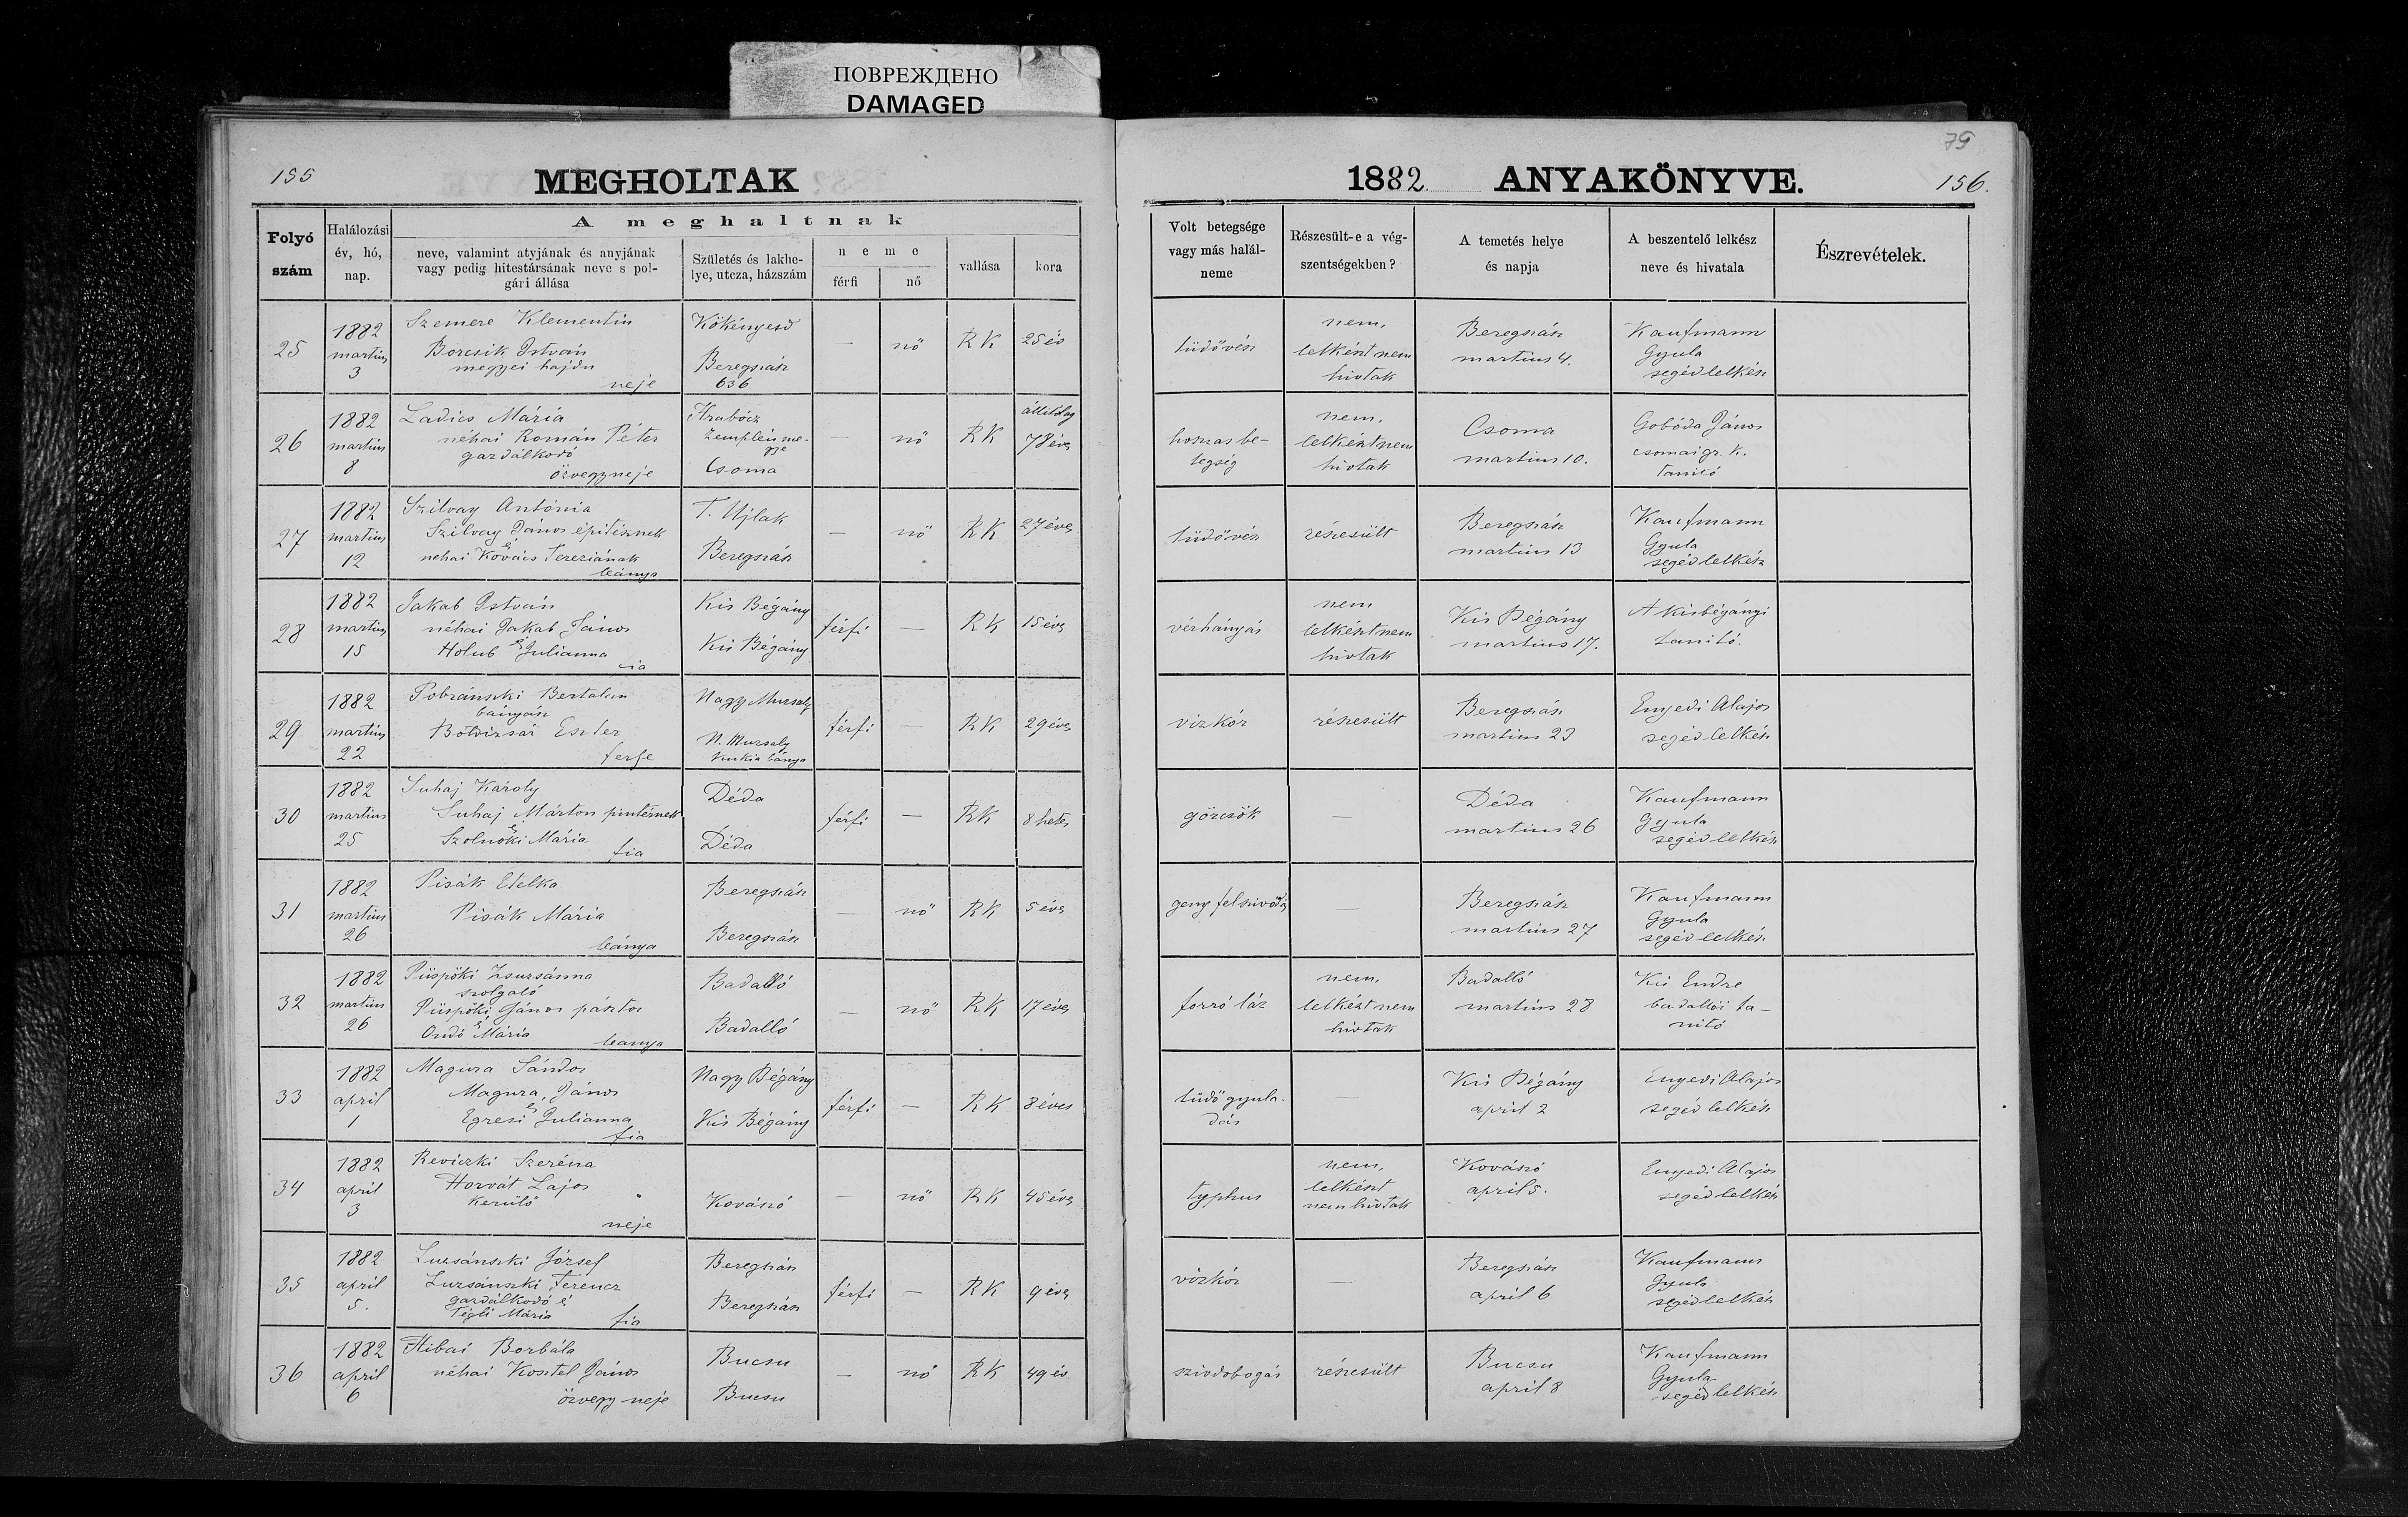 ПОВРЕЖДЕНО
DAMAGED
79
155
MEGHOLTAK
1882 ANYAKÖNYVE.
156.
Folyó szám
Halálozási év, hó, nap.
A meghaltnak
neve, valamint atyjának és anyjának vagy pedig hitestársának neve s polgári állása
Születés és lakhelye, utcza, házszám
neme
férfi
nő
vallása
kora
Volt betegsége vagy más halálneme
Részesült-e a végszentségekben?
A temetés helye és napja
A beszentelő lelkész neve és hivatala
Észrevételek.
25
1882 martius 3
Szemere Klementin
Borcsik István
megyei hajdu
neje
Kökényesd
Beregszász
636
— nő RK 25 év
tüdővész
nem,
lelkészt nem
hivtak
Beregszász
martius 4.
Kaufmann
Gyula
segédlelkész
26
1882 martius 8
Ladics Mária
néhai Román Péter
gazdálkodó
özvegyneje
Hrabócz
Zemplén me-
gye
Csoma
— nő RK
állitólag
78 éves
hosszas be-
tegség
nem,
lelkészt nem
hivtak
Csoma
martius 10.
Gobóda János
csomai gr. k.
tanitó
27
1882 martius 12
Szilvay Antónia
Szilvay János épitésznek
és
néhai Kovács Teréziának
leánya
T. Ujlak
Beregszász
— nő RK 27 éves
tüdővész
részesült
Beregszász
martius 13
Kaufmann
Gyula
segédlelkész
28
1882 martius 15
Jakab István
néhai Jakab János
és
Holub Julianna
ia
Kis Bégány
Kis Bégány
férfi — RK 15 éves
vérhányás
nem
lelkészt nem
hivtak
Kis Bégány
martius 17.
A kisbégányi
tanitó.
29
1882 martius 22
Pobránszki Bertalan
bányász
Eszter
ferje
Nagy Muzsaly
N. Muzsaly
Kukia bánya
férfi — RK 29 éves
vizkór
részesült
Beregszász
martius 23
Enyedi Alajos
segédlelkész
30
1882 martius 25
Suhaj Károly
Suhaj Márton pintérnek
és
Szolnoki Mária
fia
Déda
Déda
férfi — RK 8 hetes
görcsök
—
Déda
martius 26
Kaufmann
Gyula
segédlelkész
31
1882 martius 26
Pisák Etelka
Pisák Mária
leánya
Beregszász
Beregszász
— nő RK 5 éves
geny felszivódás
—
Beregszász
martius 27
Kaufmann
Gyula
segédlelkész
32
1882 martius 26
Püspöki Zsuzsánna
szolgáló
Püspöki János pásztor
és
Ondó Mária
leanya
Badalló
Badalló
— nő RK 17 éves
forró láz
nem,
lelkészt nem
hivtak
Badalló
martius 28
Kis Endre
badallói ta-
nitó
33
1882 april 1
Magura Sándor
Magura János
és
Egresi Julianna
fia
Nagy Bégány
Kis Bégány
férfi — RK 8 éves
tüdő gyula-
dás
—
Kis Bégány
april 2
Enyedi Alajos
segédlelkész
34
1882 april 3
Reviczki Szeréna
Horvát Lajos
kerülő
neje
Kovászó
— nő RK 45 éves
typhus
nem,
lelkészt
nem hivtak
Kovászó
april 5.
Enyedi Alajos
segédlelkész
35
1882 april 5.
Luzsánszki József
Luzsánszki Ferencz
gazdálkodó és
Tégli Mária
fia
Beregszász
Beregszász
férfi — RK 9 éves
vizkór
—
Beregszász
april 6
Kaufmann
Gyula
segédlelkész
36
1882 april 6
Hibai Borbála
néhai Kosztel János
özvegy neje
Bucsu
Bucsu
— nő RK 49 év
szivdobogás
részesült
Bucsu
april 8
Kaufmann
Gyula
segédlelkész